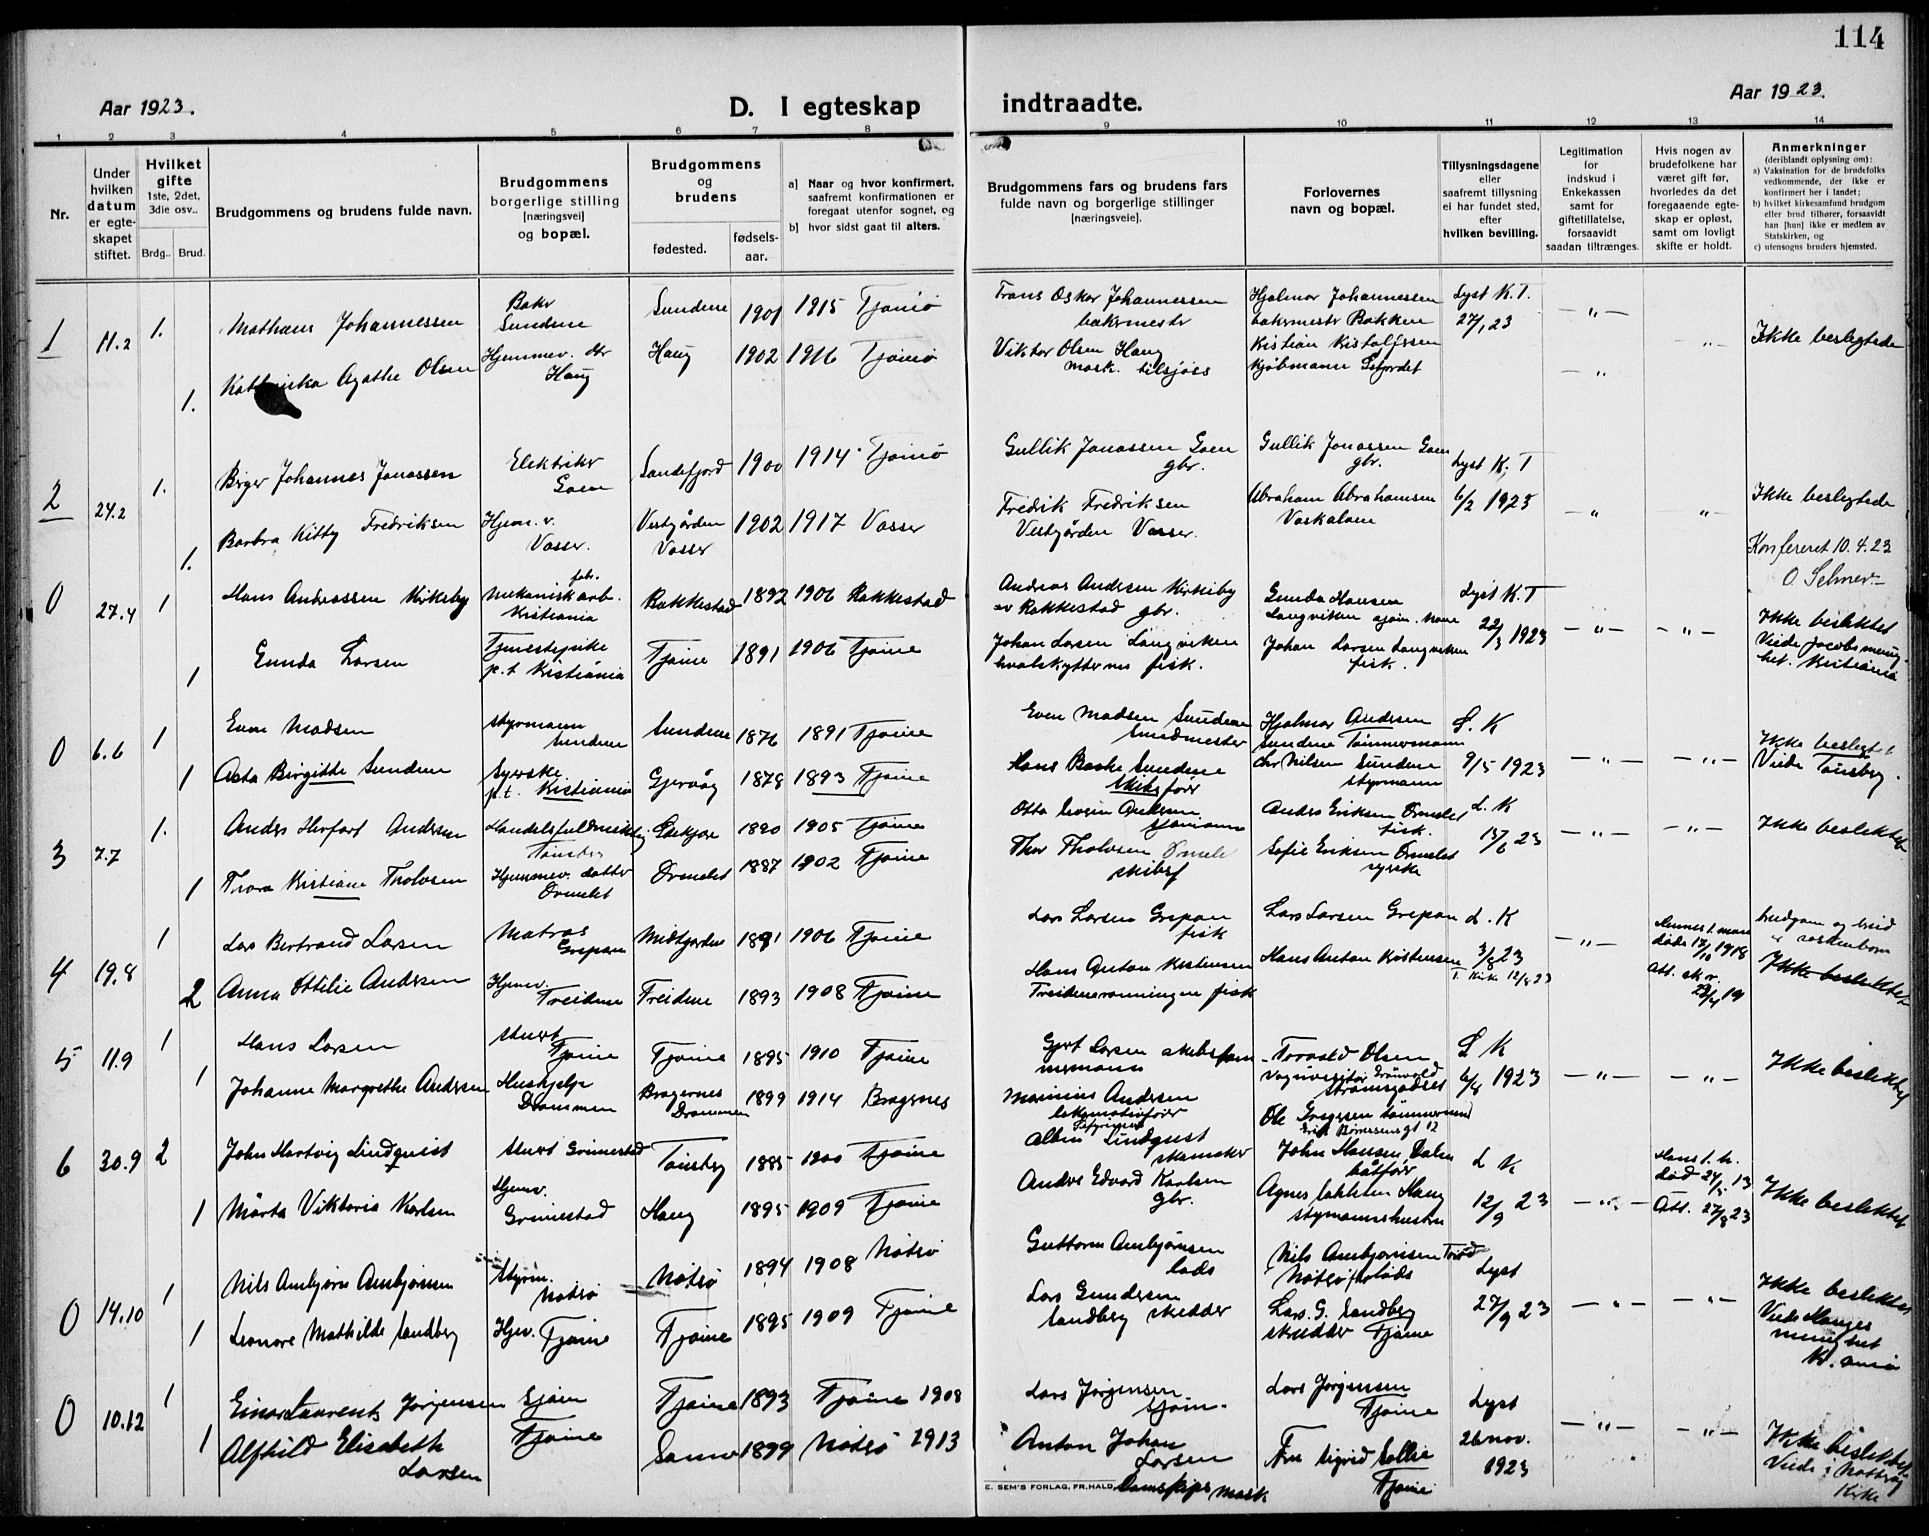 114
Aar 1923.
D. I egteskap indtraadte.
Aar 1923.
1 2 3 4 5 6 7 8 9 10 11 12 13 14
Nr.
Under hvilken datum er egteskapet stiftet.
Hvilket gifte 1ste, 2det, 3die osv..
Brdg.. Brud.
Brudgommens og brudens fulde navn.
Brudgommens borgerlige stilling [næringsvei] og bopæl.
Brudgommens og brudens
fødested. fødsels-aar.
a) Naar og hvor konfirmert, saafremt konfirmationen er foregaat utenfor sognet, og
b) hvor sidst gaat til alters.
Brudgommens fars og brudens fars fulde navn og borgerlige stillinger [næringsveie].
Forlovernes navn og bopæl.
Tillysningsdagene eller saafremt tillysning ei har fundet sted, efter hvilken bevilling.
Legitimation for indskud i Enkekassen samt for giftetillatelse, forsaavidt saadan tiltrænges.
Hvis nogen av brudefolkene har været gift før, hvorledes da det foregaaende egteskap er opløst, samt om lovligt skifte er holdt.
Anmerkninger (deriblandt oplysning om):
a) Vaksination for de brudefolks vedkommende, der ikke er konfirmert her i landet;
b) hvilket kirkesamfund brudgom eller brud tilhører, forsaavidt han [hun] ikke er medlem av Statskirken, og
c) utensogns bruders hjemsted.
1 11.2 1. Mathæus Johannessen Baker Sundene Sundene 1901 1915 Tjømø Frans Oskar Johannessen bakermester Hjalmar Johannessen bakermester Bakken Lyst K.T. 27/1 23 - " -
1. Agathe Olsen Hjemmev. dtr Haug Haug 1902 1916 Tjømø Viktor Olsen Haug mask. tilsjøss Kristian kjøbmann - " - Ikke beslegtede
2 24.2 1. Birger Johannes Jonassen Elektriker Goen Sandefjord 1900 1914 Tjømø Gullik Jonassen Goen gbr. Gullik Jonassen Goen gbr. Lyst K. T 6/2 1923
1. Barbra Kitty Fredriksen Hjem. v. Vasser. Vestgården Vasser 1902 1917 Vasser Fredrik Fredriksen Vestgården Vasser. Abraham Abrahamsen - " - - " - Ikke beslegtede
Konfereret 10.4.23
O. Selmer
0 27.4 1 Hans Andreassen Kirkeby mekanisk fab. arb. Kristiania Rakkestad 1892 1906 Rakkestad Andreas Andersen Kirkeby av Rakkestad gbr. Gunda Hansen Langviken Lyst K.T 22/3 1923 - " - - " -
1 Gunda Larsen Tjenestepike p.t Kristiania Tjøme 1891 1906 Tjøme Johan Larsen Langviken fisk. Johan Larsen Langviken fisk. Ikke beslektet Viede Jacobs menighet. Kristiania
0 6.6 1 Even Madsen styrmann Sundene Sundene 1876 1891 Tjøme Even Madsen Sundene Smedmester Hjalmar Andersen Sundene Tømmermann L. K 9/5 1923 - " - - " -
1 Asta Birgitte Sundene Syerske p.t. Kristiania Gjervåg 1878 1893 Tjøme Hans Bache Sundene Skibsfører Chr Nilsen Sundene styrmann Ikke beslegtet Viede Tønsberg.
3 7.7 1. Anders Herfort Andersen Handelsfuldmektig Tønsberg 1890 1905 Tjøme Otto Andersen Anders Eriksen Ormelet fisk. L. K 15/6 23 - " - - " - Ikke beslektet
1 Thora Kristiane Tholvsen Hjemmev. datter Ormelet Ormelet 1887 1902 Tjøme Thor Tholvsen Ormele skibsf Sofie Eriksen Ormelet syerske
4 19.8 1 Lars Bertrand Larsen Matros Grepan Midtgarden 1891 1906 Tjøme Lars Larsen Grepan fisk Lars Larsen Grepan L. K 3/8 23 T. Kirke 12/8 23 - " - Hennes 1. man døde 17/10 1918 brudgom og brud er søskenbarn
2 Anna Ottilie Andersen Hjemv. Treidene Treidene 1893 1908 Tjøme Hans Anton Kristensen fisk Hans Anton Kristensen Att. sk.r. 23/4 19 Ikke beslektet
5 11.9 1 Hans Larsen stuert Tjøme Tjøme 1895 1910 Tjøme Gjert Larsen Torvald Olsen L K 6/8 1923 - " - - " - Ikke beslektet
1 Johanne Margrethe Andersen Hushjelp Drammen Bragernes Drammen 1899 1914 Bragernes Marinius Andersen lokomotivfører Ole Gregersen tømmermand
6 30.9 2 John Hartvig Lindquist stuert Grimestad Tønsberg 1885 1900 Tjøme Albin Lindqust skomaker John Hansen Dalen båtfør L K 12/9 23 - " - Hans 1. h. død 24/5 13
1 Märta Viktoria Karlsen Hjemv. Grimestad Haug 1895 1909 Tjøme Andre Edvard Karlsen gbr. Agnes Haug styrmannshustru Att. 27/8 23 Ikke beslektet
0 14.10 1 Nils Ambjørn Ambjørnsen Styrm. Nøtrø Nøtrø 1894 1908 Nøtrø Guttorm Ambjørnsen lods Nils Ambjørnsen Lyst 27/9 23 - " - - " -
1 Leonore Mathilde Sandberg Hjev. Tjøme Tjøme 1895 1909 Tjøme Lars Gundersen Sandberg skredder Lars. G. Sandberg skredder Tjøme Ikke beslektet Viede Hauges menighet
0 10.12 1 Einar Laurents Jørgensen Sjøm Tjøme 1893 Tjøme 1908 Lars Jørgensen sjøm. Lars Jørgensen Tjøme Lyst 26 nov. 1923 - " - - " -
1 Alfhild Elisabeth Larsen Tjøme 1899 Nøtrø 1913 Anton Johan Larsen Fru Sigrid Sollie Tjøme Ikke beslektet Viede i Nøtterøy Kirke
E. SEM'S FORLAG, FR.HALD.